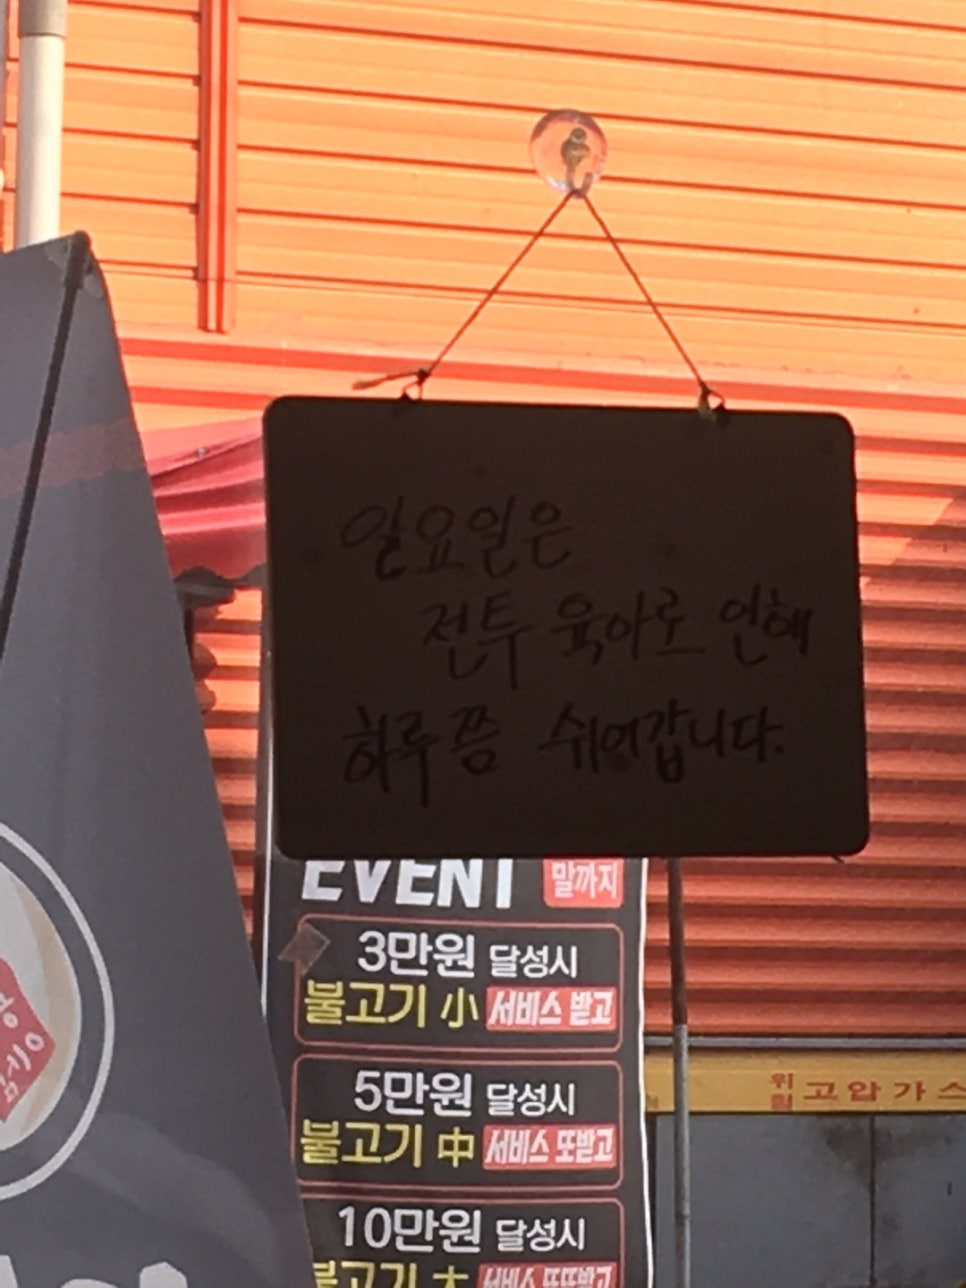 일요일은
전투 육아로 인해
하루쯤 쉬어갑니다.
EVENT 말까지
3만원 달성시
불고기 小 서비스 받고
5만원 달성시
불고기 中 서비스 또받고
10만원 달성시
불고기 大 서비스 또또받고
위험 고압가스